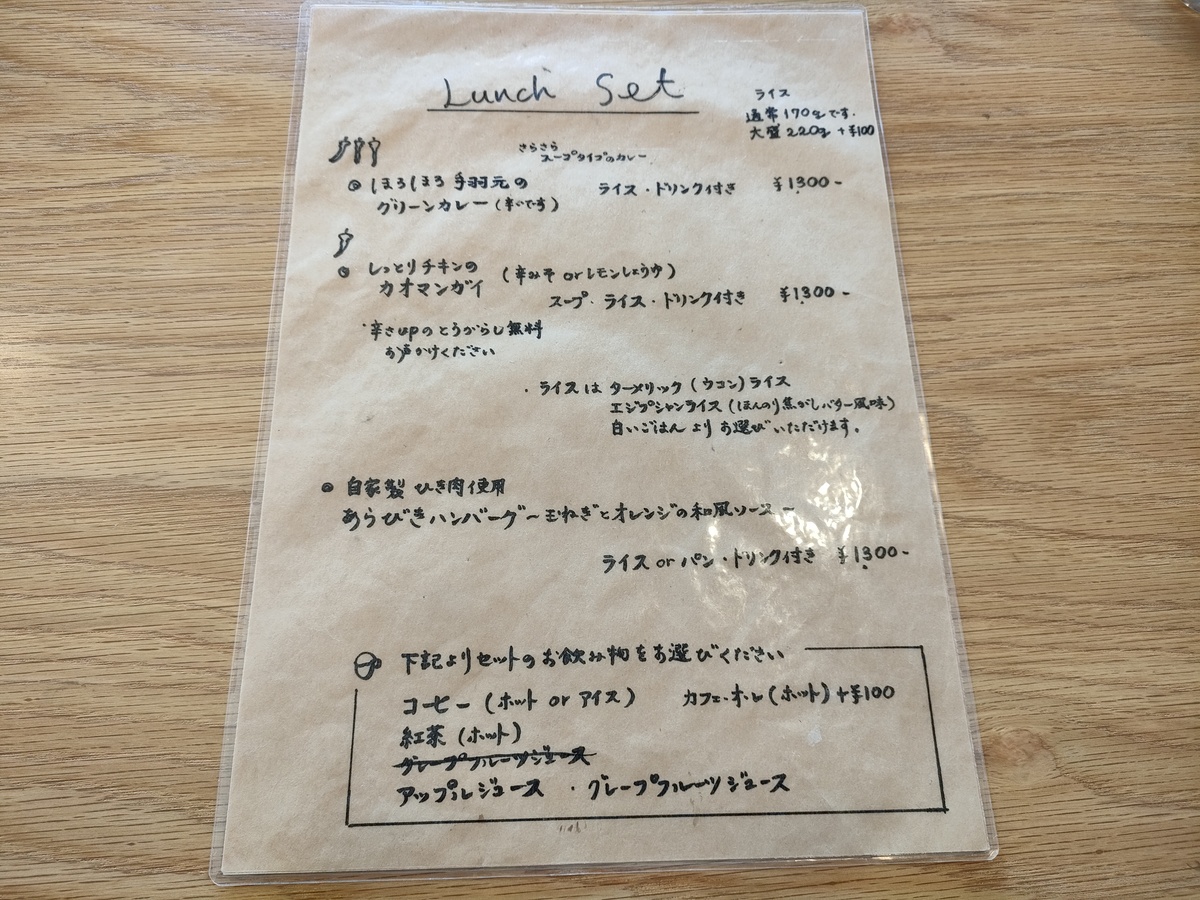 Lunch Set
ライス
通常170gです.
大盛220g +¥100
さらさら
スープタイプのカレー
◎ ほろほろ手羽元の
グリーンカレー (辛いです)
ライス・ドリンク付き ¥1300-
◎ しっとりチキンの
カオマンガイ
(辛みそ or レモンしょうゆ)
スープ・ライス・ドリンク付き ¥1300-
・辛さupのとうがらし無料
お声かけください
・ライスは ターメリック (ウコン) ライス
エジプシャンライス (ほんのり焦がしバター風味)
白いごはん より お選びいただけます。
◎ 自家製 ひき肉使用
あらびきハンバーグ~玉ねぎとオレンジの和風ソース~
ライス or パン・ドリンク付き ¥1300-
下記よりセットのお飲み物をお選びください
コーヒー (ホット or アイス) カフェ・オ・レ (ホット) +¥100
紅茶 (ホット)
グレープフルーツジュース
アップルジュース ・グレープフルーツジュース